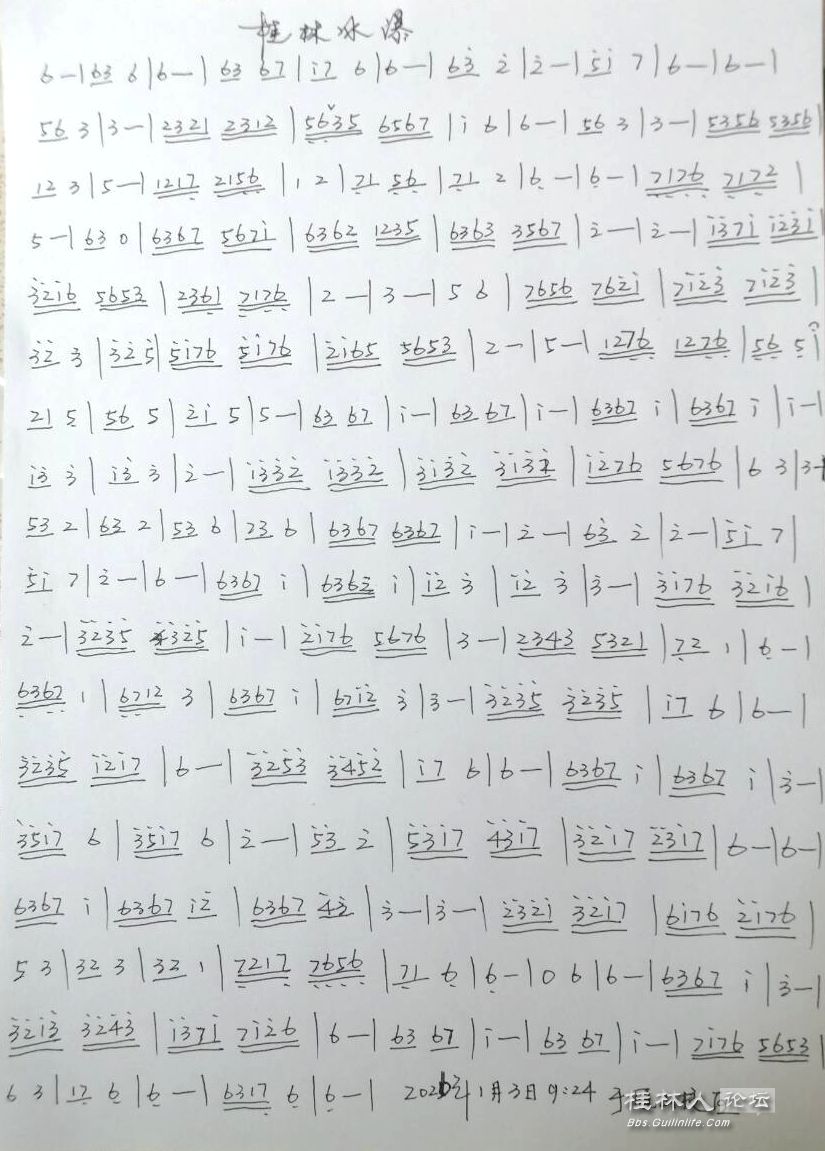 桂林冰瀑
6 — | 63 6 | 6 — | 63 67 | i7 6 | 6 — | 63 2 | 2 — | 5i 7 | 6 — | 6 — |
56 3 | 3 — | 2321 2312 | 5635 6567 | i 6 | 6 — | 56 3 | 3 — | 5356 5356 |
12 3 | 5 — | 1217 2156 | 1 2 | 71 56 | 71 2 | 6 — | 6 — | 7176 7172 |
5 — | 63 0 | 6367 567i | 6362 1235 | 6363 3567 | 2 — | 2 — | i37i i23i |
3216 5653 | 2361 7176 | 2 — | 3 — | 5 6 | 7656 762i | 7i23 7i23 |
32 3 | 32 5 | 5i76 5i76 | 2i65 5653 | 2 — | 5 — | 1276 1276 | 56 5 |
21 5 | 56 5 | 2i 5 | 5 — | 63 67 | i — | 63 67 | i — | 6367 i | 6367 i | i — |
i3 3 | i3 3 | 2 — | i332 i332 | 3i32 3i32 | i276 5676 | 6 3 | 3 — |
53 2 | 63 2 | 53 6 | 23 6 | 6367 6367 | i — | 2 — | 63 2 | 2 — | 5i 7 |
5i 7 | 2 — | 6 — | 6367 i | 6362 i | i2 3 | i2 3 | 3 — | 3i76 32i6 |
2 — | 3235 4325 | i — | 2i76 5676 | 3 — | 2343 5321 | 72 1 | 6 — |
6367 1 | 6712 3 | 6367 i | 67i2 3 | 3 — | 3235 3235 | i7 6 | 6 — |
3235 i2i7 | 6 — | 3253 3452 | i7 6 | 6 — | 6367 i | 6367 i | 3 — |
35i7 6 | 35i7 6 | 2 — | 53 2 | 53i7 43i7 | 32i7 23i7 | 6 — | 6 — |
6367 i | 6367 i2 | 6367 42 | 3 — | 3 — | 232i 32i7 | 6i76 2i76 |
5 3 | 32 3 | 32 1 | 7217 7656 | 71 6 | 6 — | 0 6 | 6 — | 6367 i | 3 — |
32i3 3243 | i37i 7i26 | 6 — | 63 67 | i — | 63 67 | i — | 7i76 5653 |
6 3 | 17 6 | 6 — | 6317 6 | 6 — | 2021年1月3日9:24 于
桂林人论坛
Bbs.Guilinlife.Com